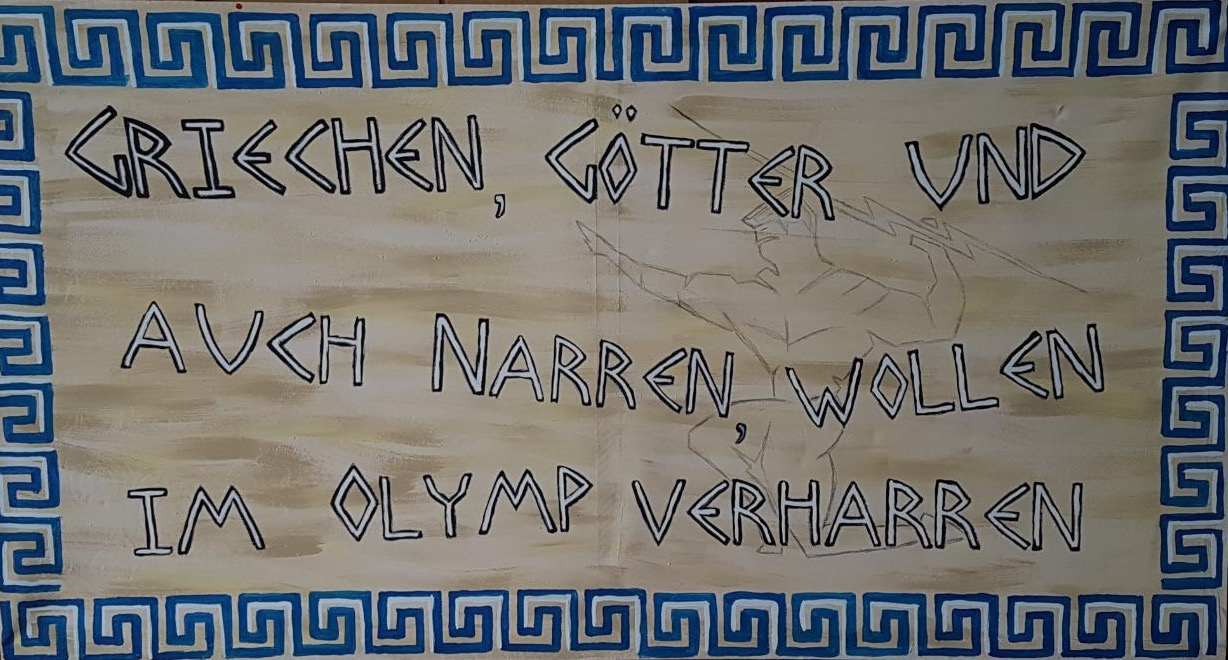 GRIECHEN, GÖTTER UND
AUCH NARREN, WOLLEN
IM OLYMP VERHARREN